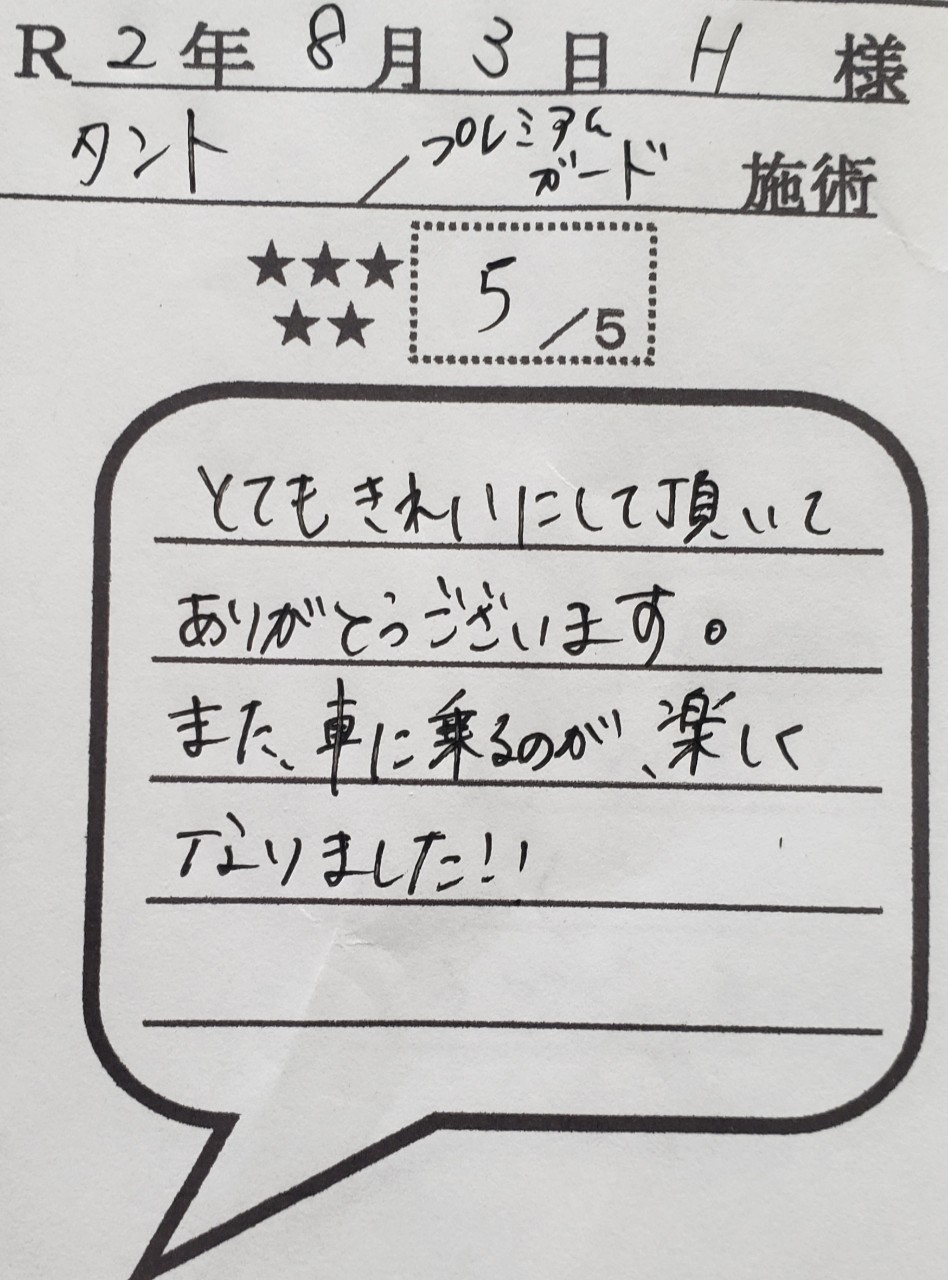 R2年 8月3日 H 様
タント / プレミアム
ガード 施術
★★★
★★
5/5
とてもきれいにして頂いて
ありがとうございます。
また、車に乗るのが、楽しく
なりました!!